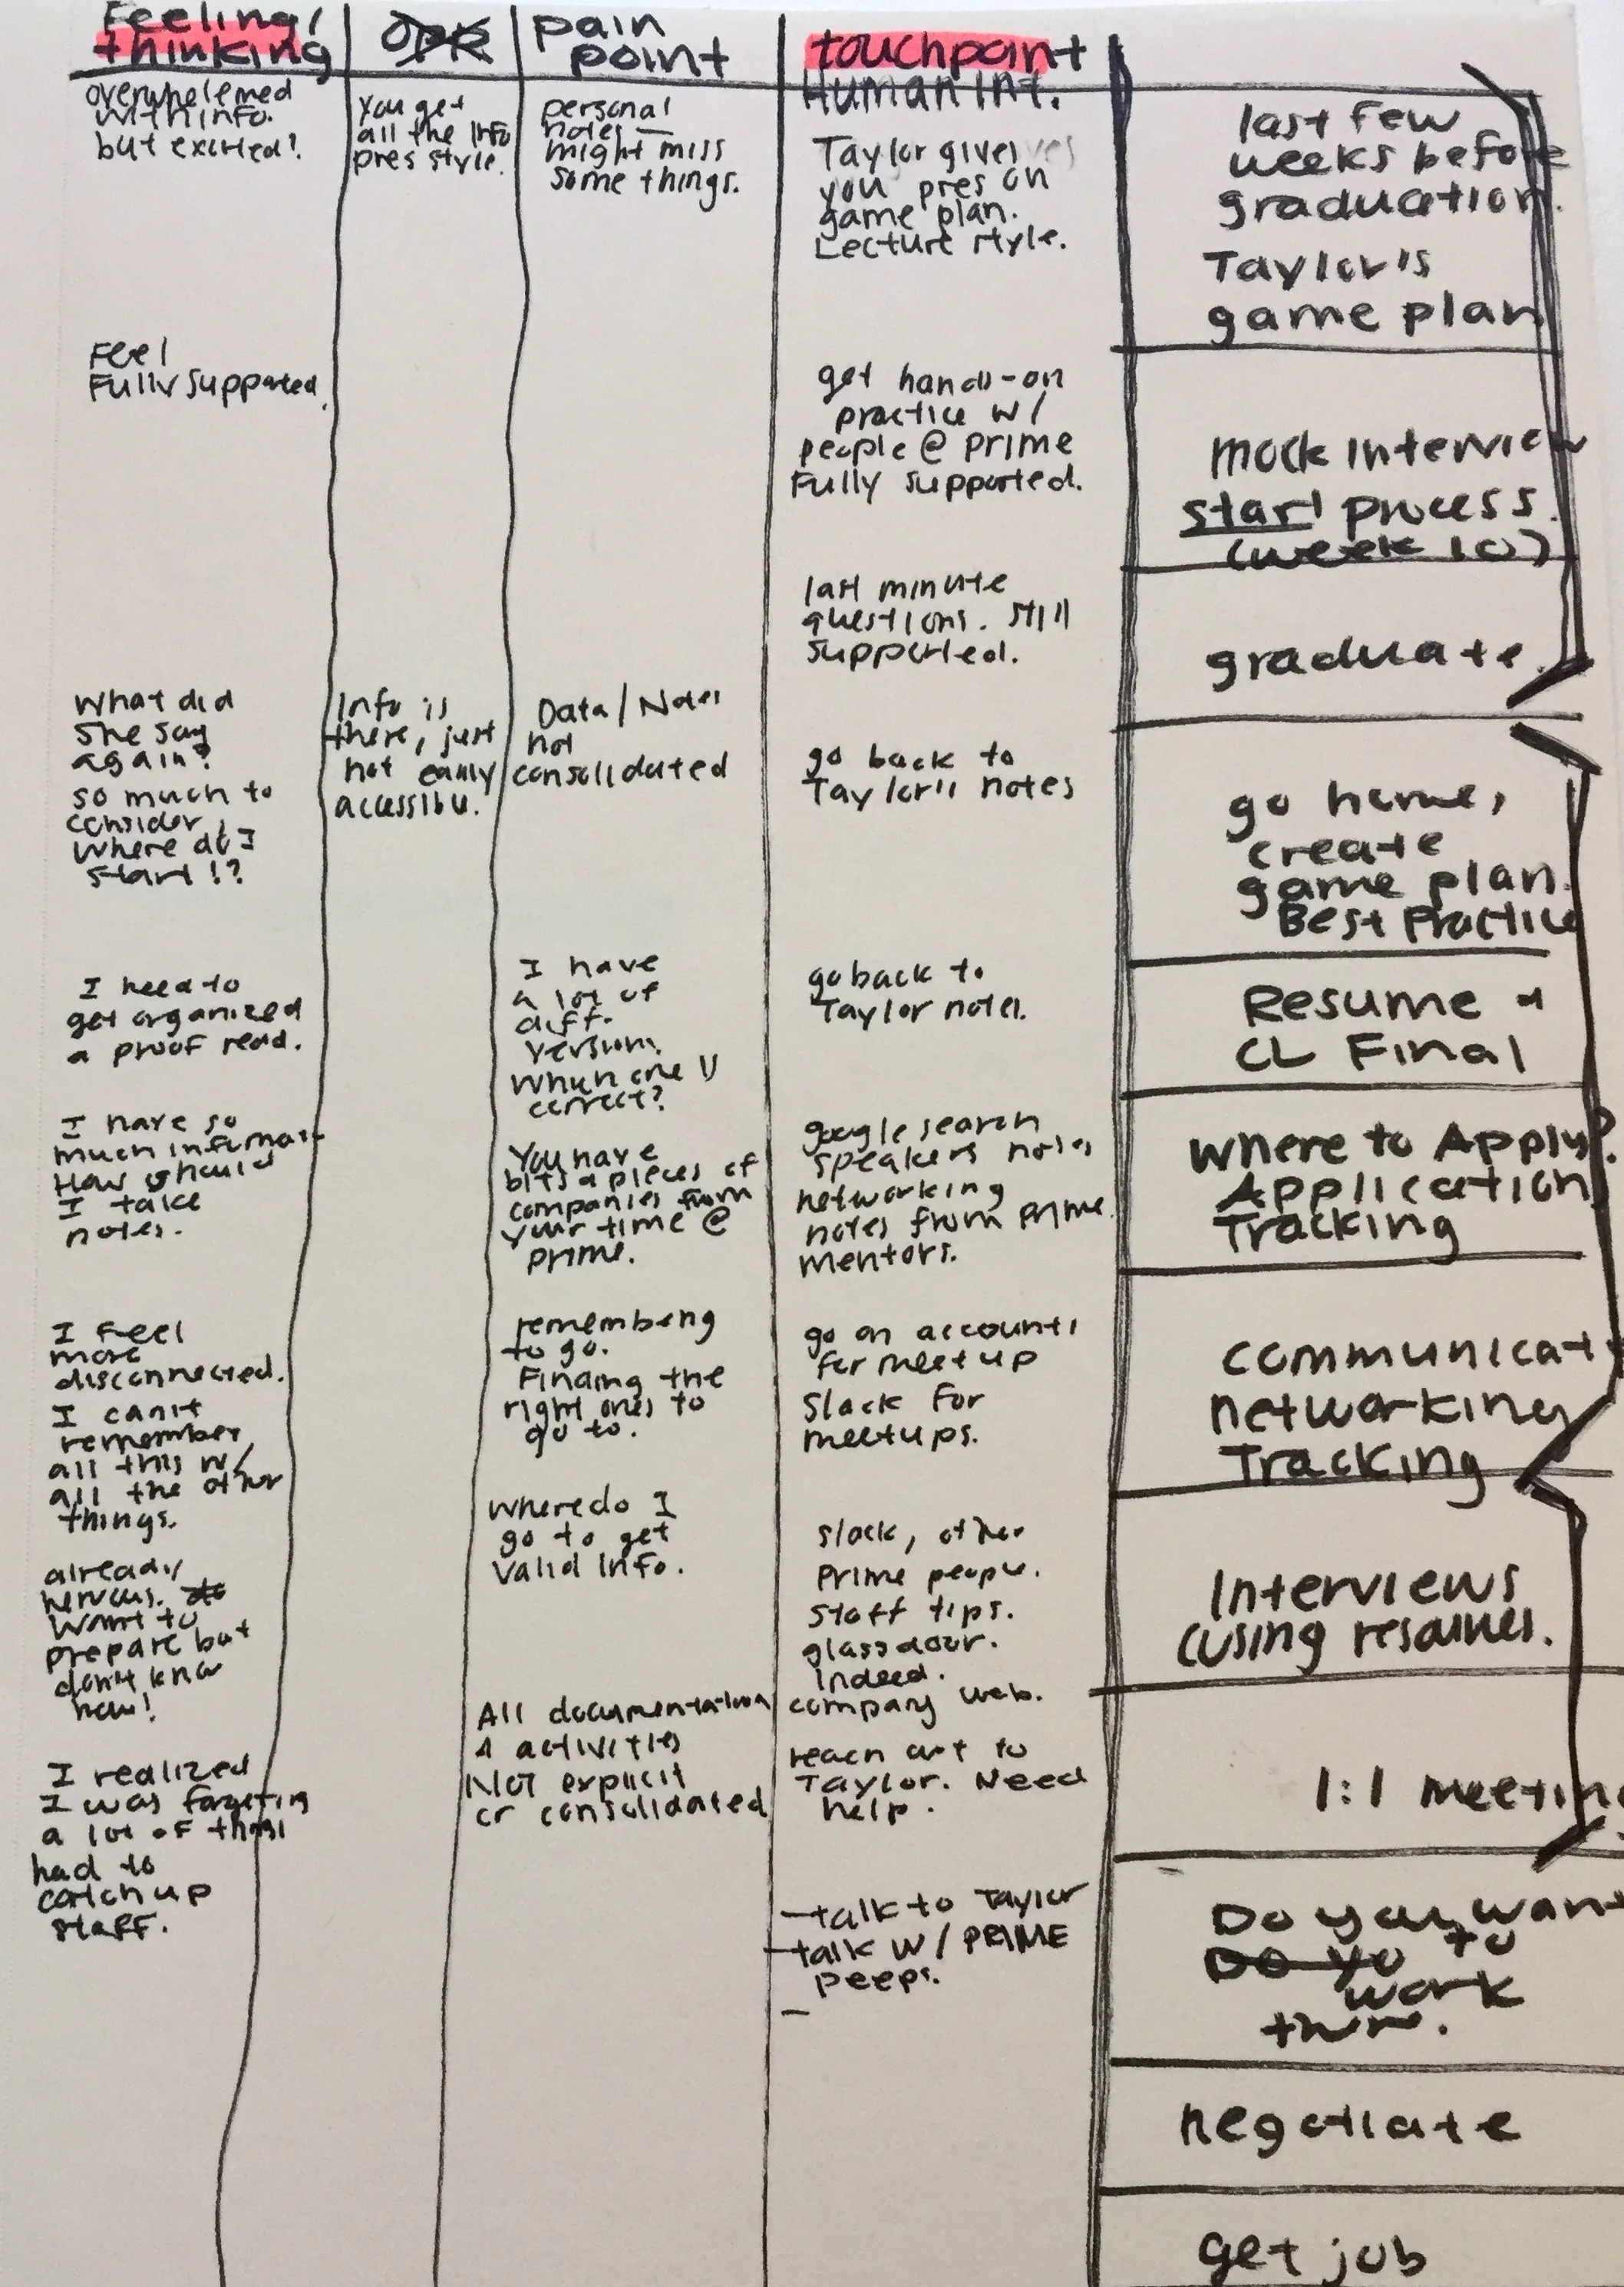 Feeling/
thinking
pain
point
touchpoint
Human Int.
overwhelemed
with info.
but excited!
You get
all the info
pres style.
personal
notes —
might miss
some things.
Taylor gives
you pres on
game plan.
Lecture style.
last few
weeks before
graduation.
Taylor's
game plan
Feel
Fully supported.
get hands-on
practice w/
people @ prime
Fully supported.
mock interview
start process.
(week 10)
last minute
questions. still
supported.
graduate.
What did
she say
again?
so much to
consider,
where do I
start!?
Info is
there, just
not easily
Data/Notes
not
consolidated
go back to
Taylor's notes
go home,
create
game plan.
Best Practice
I need to
get organized
a proof read.
I have
a lot of
diff.
version.
Which one is
correct?
go back to
Taylor notes.
Resume +
CL Final
I have so
much informat
How should
I take
notes.
You have
bits & pieces of
companies from
your time @
prime.
google search
speakers notes
networking
notes from prime
mentors.
Where to Apply?
Application
Tracking
I feel
more
disconnected.
I can't
remember
all this w/
all the other
things.
remembering
to go.
Finding the
right ones to
go to.
go on accounts
for meetup
Slack for
meetups.
communicat
networking
Tracking
already
nervous.
want to
prepare but
don't know
how!
Where do I
go to get
valid info.
slack, other
prime people.
staff tips.
glassdoor.
Indeed.
company web.
Interviews
(using resumes.
I realized
I was forgetting
a lot of things
had to
catch up
staff.
All documentation
& activities
Not explicit
or consolidated
reach out to
Taylor. Need
help.
1:1 meeting
—talk to Taylor
—talk w/ PRIME
peeps.
—
Do you want
Do yo to
work
there.
negotiate
get job